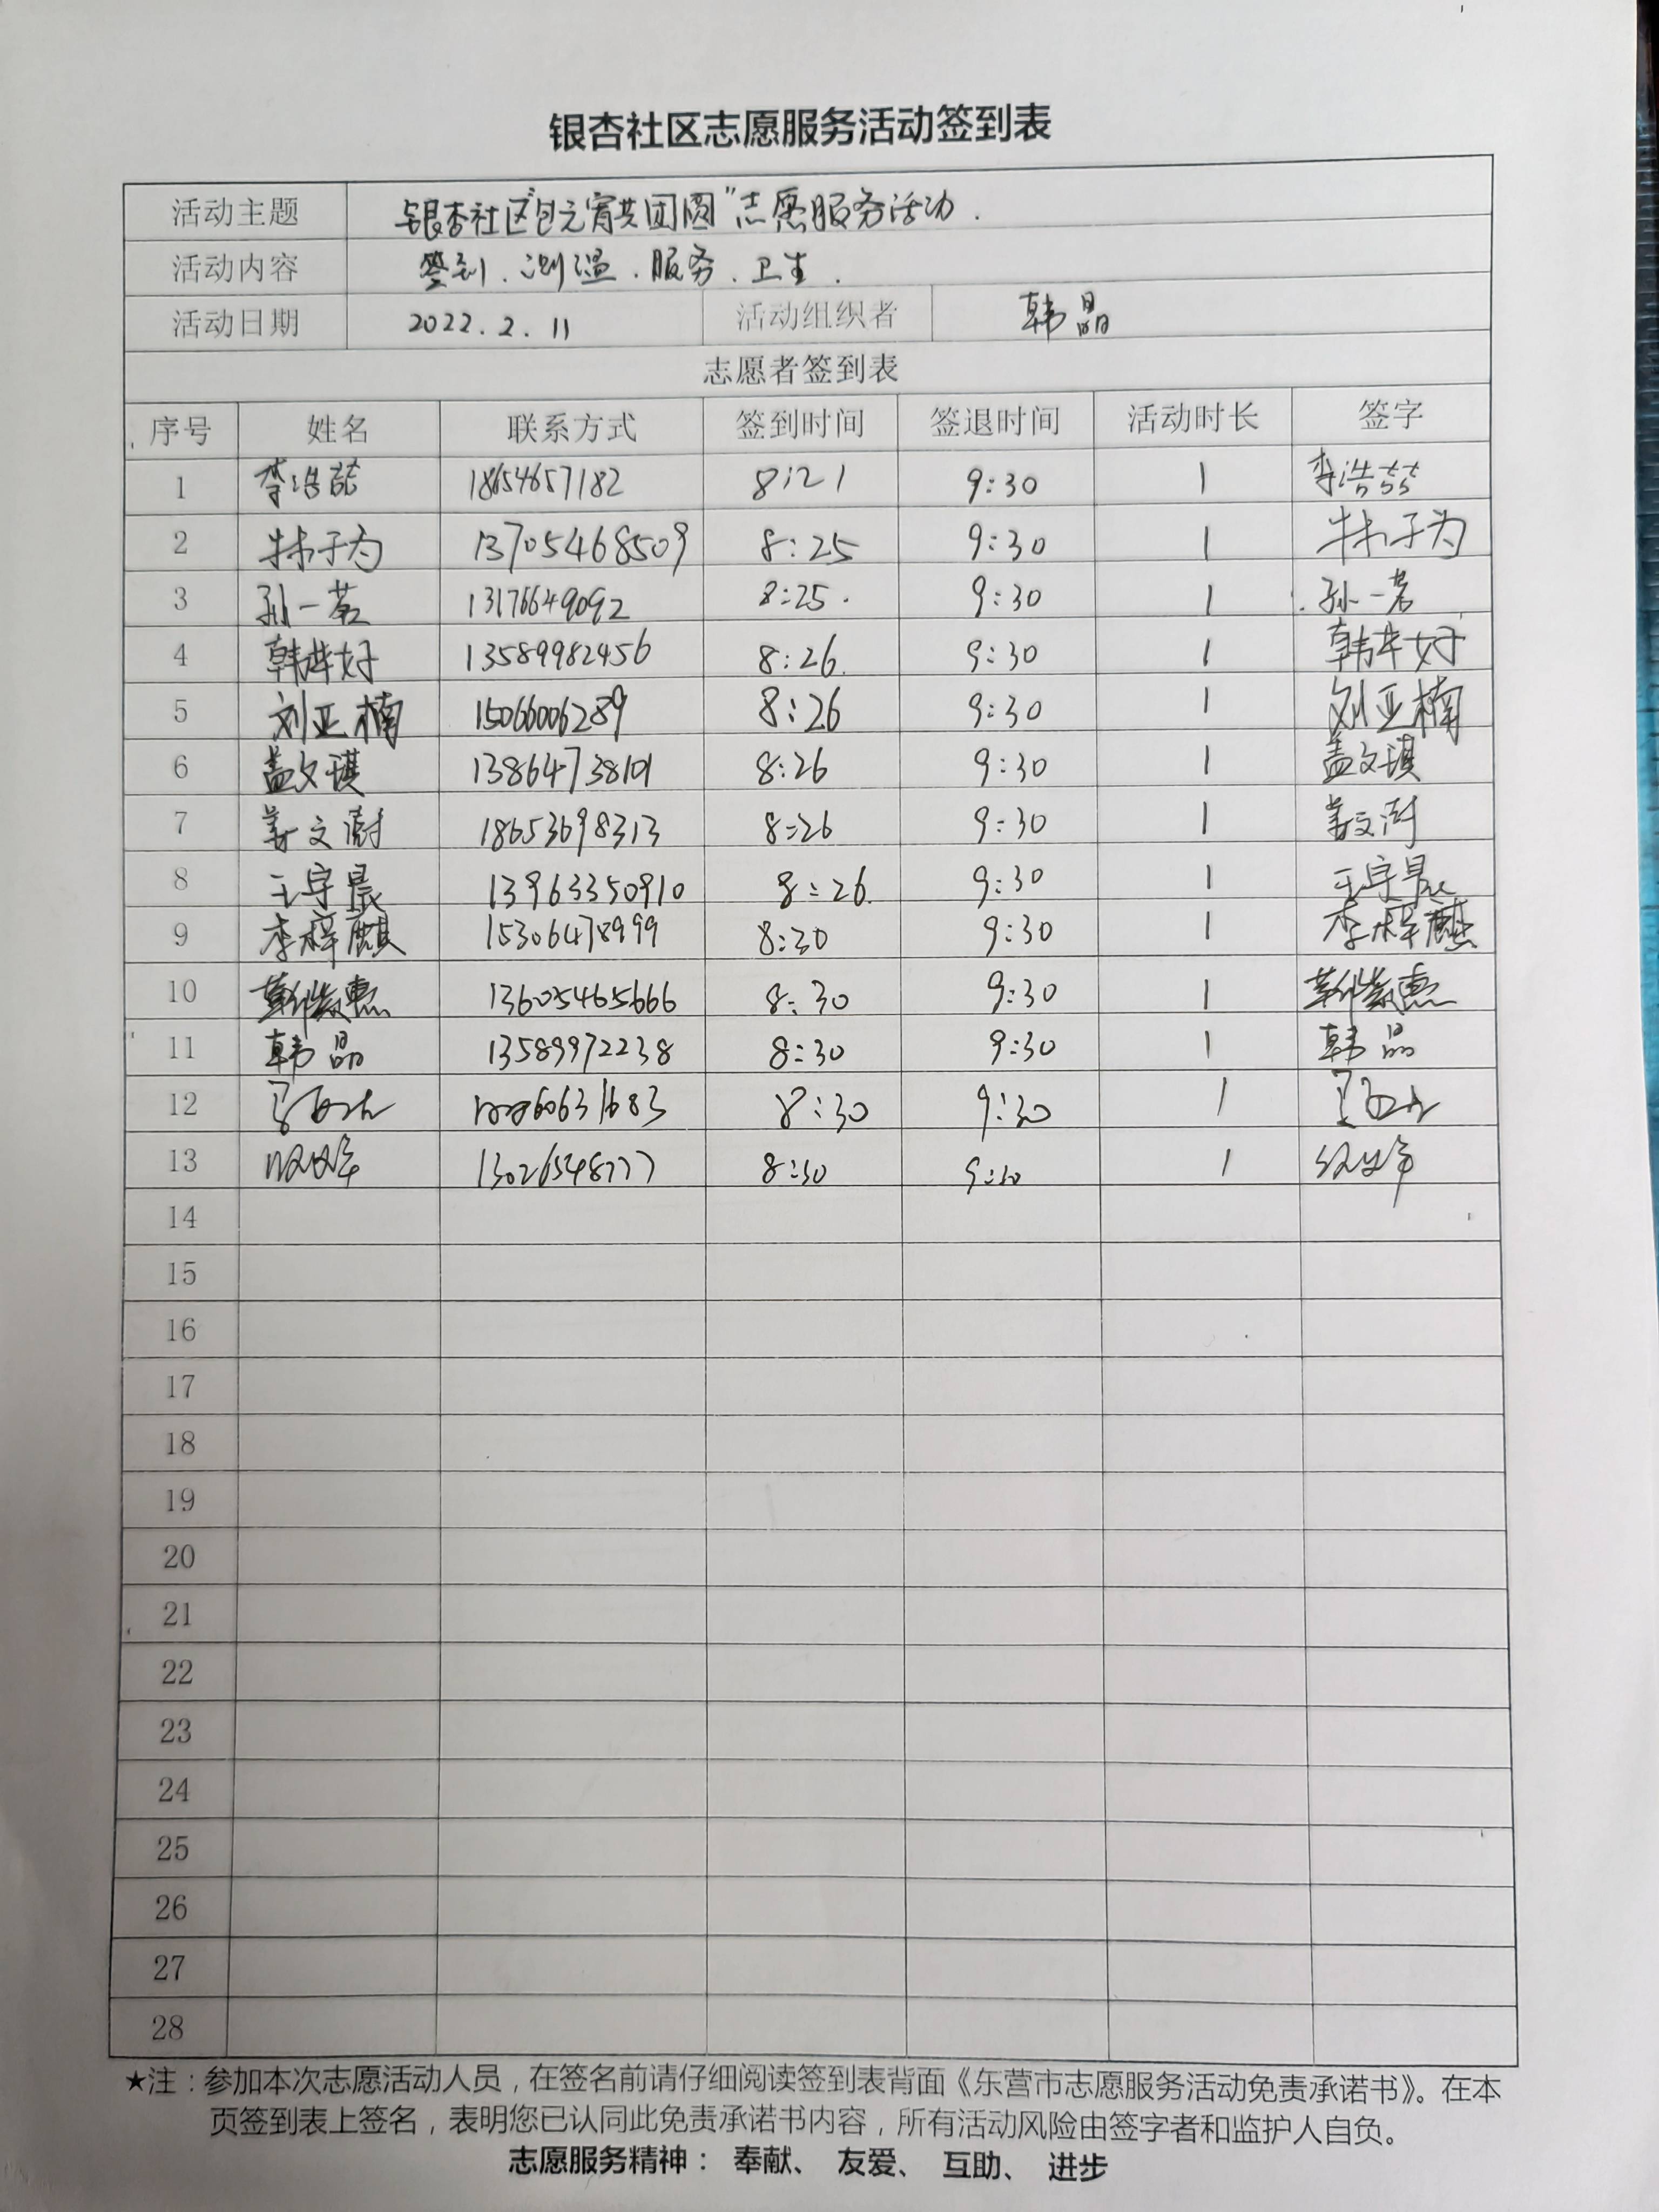 银杏社区志愿服务活动签到表
活动主题 银杏社区"包元宵共团圆"志愿服务活动.
活动内容 签到.测温.服务.卫生.
活动日期 2022.2.11 活动组织者 韩晶
志愿者签到表
序号 姓名 联系方式 签到时间 签退时间 活动时长 签字
1 李浩喆 18654657182 8:21 9:30 1 李浩喆
2 林子为 13705468509 8:25 9:30 1 林子为
3 孙一茗 13176649092 8:25. 9:30 1 孙一茗
4 13589982456 8:26. 9:30 1
5 刘亚楠 15066006289 8:26 9:30 1 刘亚楠
6 盖文琪 13864738101 8:26 9:30 1 盖文琪
7 姜文澍 18653698313 8:26 9:30 1 姜文澍
8 王宇晨 13963350910 8:26. 9:30 1 王宇晨
9 李梓麒 15306478999 8:30 9:30 1 李梓麒
10 13605465666 8:30 9:30 1
11 韩晶 13589972238 8:30 9:30 1 韩晶
12 8:30 9:30 1
13 8:30 9:30 1
14
15
16
17
18
19
20
21
22
23
24
25
26
27
28
★注：参加本次志愿活动人员，在签名前请仔细阅读签到表背面《东营市志愿服务活动免责承诺书》。在本
页签到表上签名，表明您已认同此免责承诺书内容，所有活动风险由签字者和监护人自负。
志愿服务精神： 奉献、 友爱、 互助、 进步